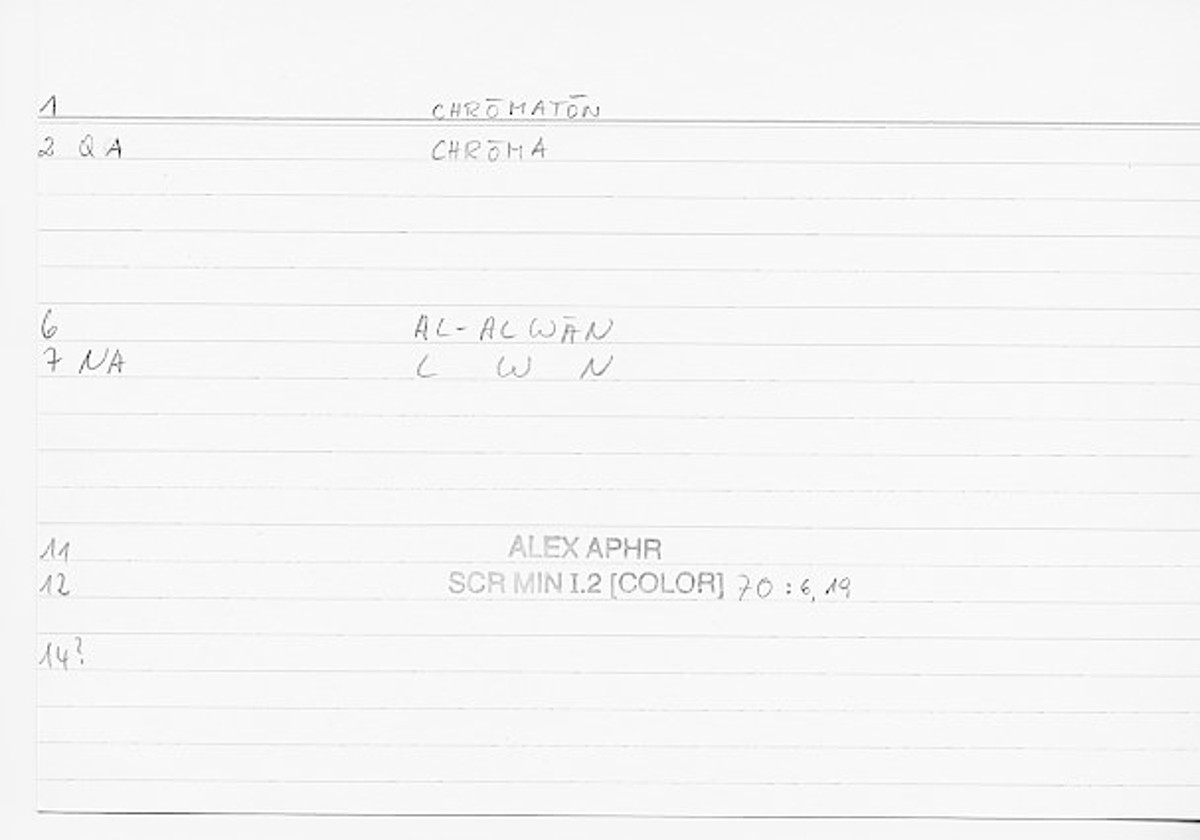 1 CHRŌMATŌN
2 QA CHRŌMA
6 AL-ALWĀN
7 NA L W N
11 ALEX APHR
12 SCR MIN I.2 [COLOR] 70 : 6, 19
14?